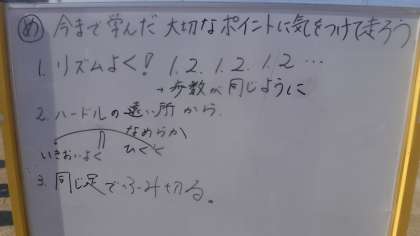 め 今まで学んだ 大切なポイントに気をつけて走ろう
1. リズムよく! 1.2.1.2.1.2…
→歩数が同じように
2. ハードルの遠い所から
なめらか
いきおいよく ひくく
3. 同じ足でふみ切る。